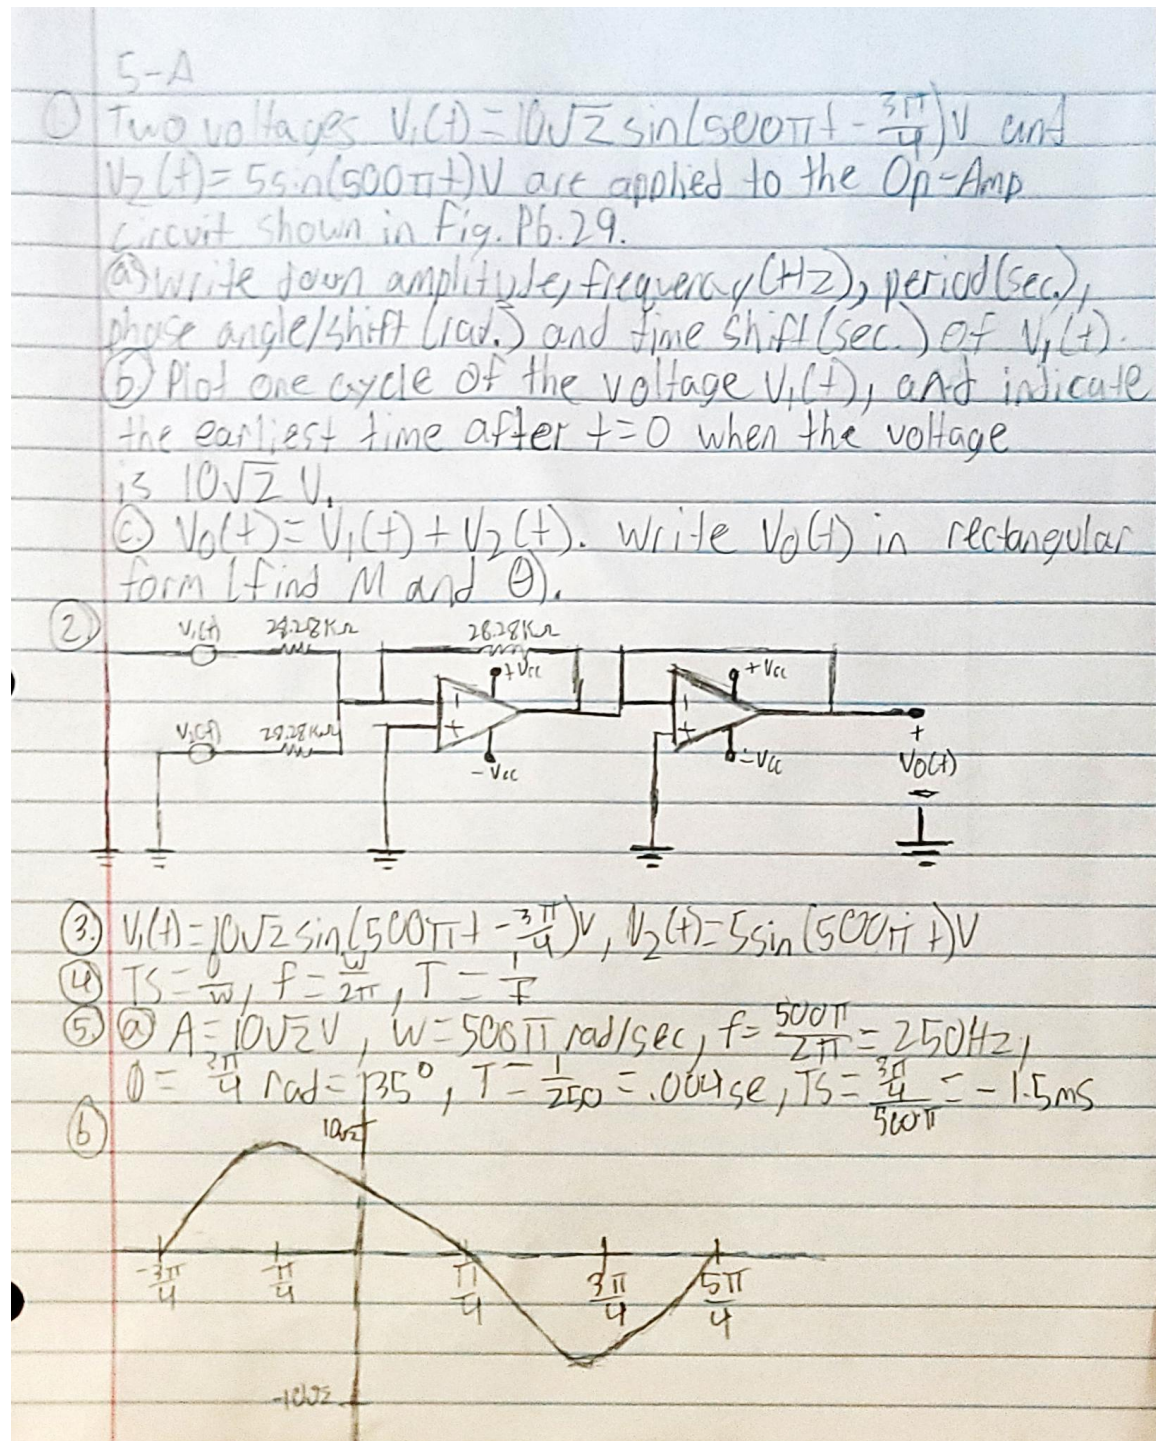 5-A
① Two voltages V₁(t)=10√2 sin(500πt - 3π/4)V and
V₂(t)=5sin(500πt)V are applied to the Op-Amp
circuit shown in Fig. P6.29.
ⓐ Write down amplitude, frequency(Hz), period(sec.),
phase angle/shift (rad.) and time shift (sec.) of V₁(t).
ⓑ Plot one cycle of the voltage V₁(t), and indicate
the earliest time after t=0 when the voltage
is 10√2 V.
ⓒ V₀(t)=V₁(t)+V₂(t). Write V₀(t) in rectangular
form (find M and θ).
② V₁(t) 28.28KΩ 28.28KΩ
+Vcc +Vcc
- -
V₂(t) 28.28KΩ + +
-Vcc -Vcc +
V₀(t)
-
③ V₁(t)=10√2 sin(500πt - 3π/4)V, V₂(t)=5sin(500πt)V
④ TS=θ/w, f=w/2π, T=1/f
⑤ ⓐ A=10√2V, w=500π rad/sec, f=500π/2π=250Hz,
θ=3π/4 rad=135°, T=1/250=.004se, TS=3π/4/500π=-1.5ms
ⓑ 10√2
-3π/4 -π/4 π/4 3π/4 5π/4
-10√2